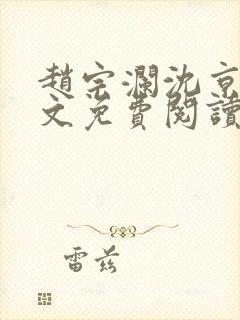 趙宗瀾沈京
文免費閱讀
雷茲